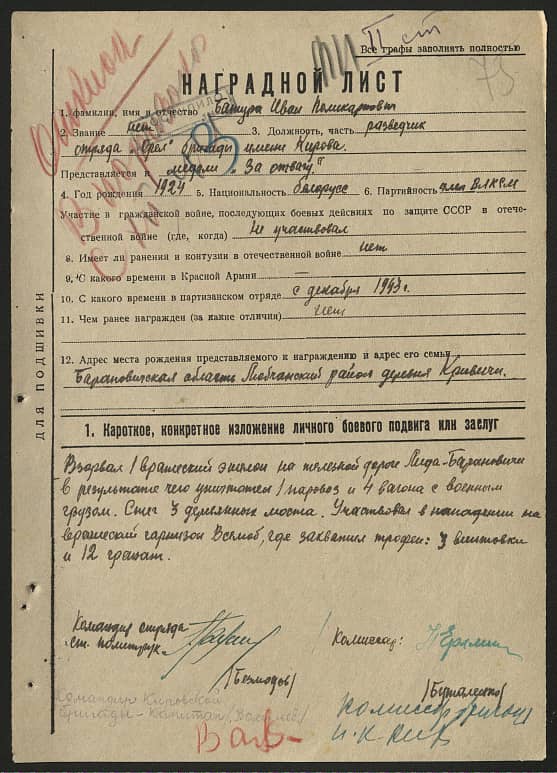 II ст
Все графы заполнять полностью
73
НАГРАДНОЙ ЛИСТ
1. Фамилия, имя и отчество Батура Иван Поликарпович
2. Звание нет 3. Должность, часть разведчик
отряда "Орёл" бригады имени Кирова.
Представляется к медали "За отвагу"
4. Год рождения 1924 5. Национальность белорусс 6. Партийность член ВЛКСМ
Участие в гражданской войне, последующих боевых действиях по защите СССР в отече-
ственной войне (где, когда) Не участвовал
8. Имеет ли ранения и контузии в отечественной войне нет
9. С какого времени в Красной Армии —
10. С какого времени в партизанском отряде с декабря 1943 г.
11. Чем ранее награжден (за какие отличия) нет
12. Адрес места рождения представляемого к награждению и адрес его семьи
Барановичская область Любчанский район деревня Кривичи.
ДЛЯ ПОДШИВКИ
1. Короткое, конкретное изложение личного боевого подвига или заслуг
Взорвал 1 вражеский эшелон на железной дороге Лида-Барановичи
в результате чего уничтожен 1 паровоз и 4 вагона с военным
грузом. Сжег 3 деревянных моста. Участвовал в нападении на
вражеский гарнизон Вселюб, где захватил трофеи: 3 винтовки
и 12 гранат.
Командир отряда
ст. политрук
Комиссар:
Командир Кировской
бригады - Капитан